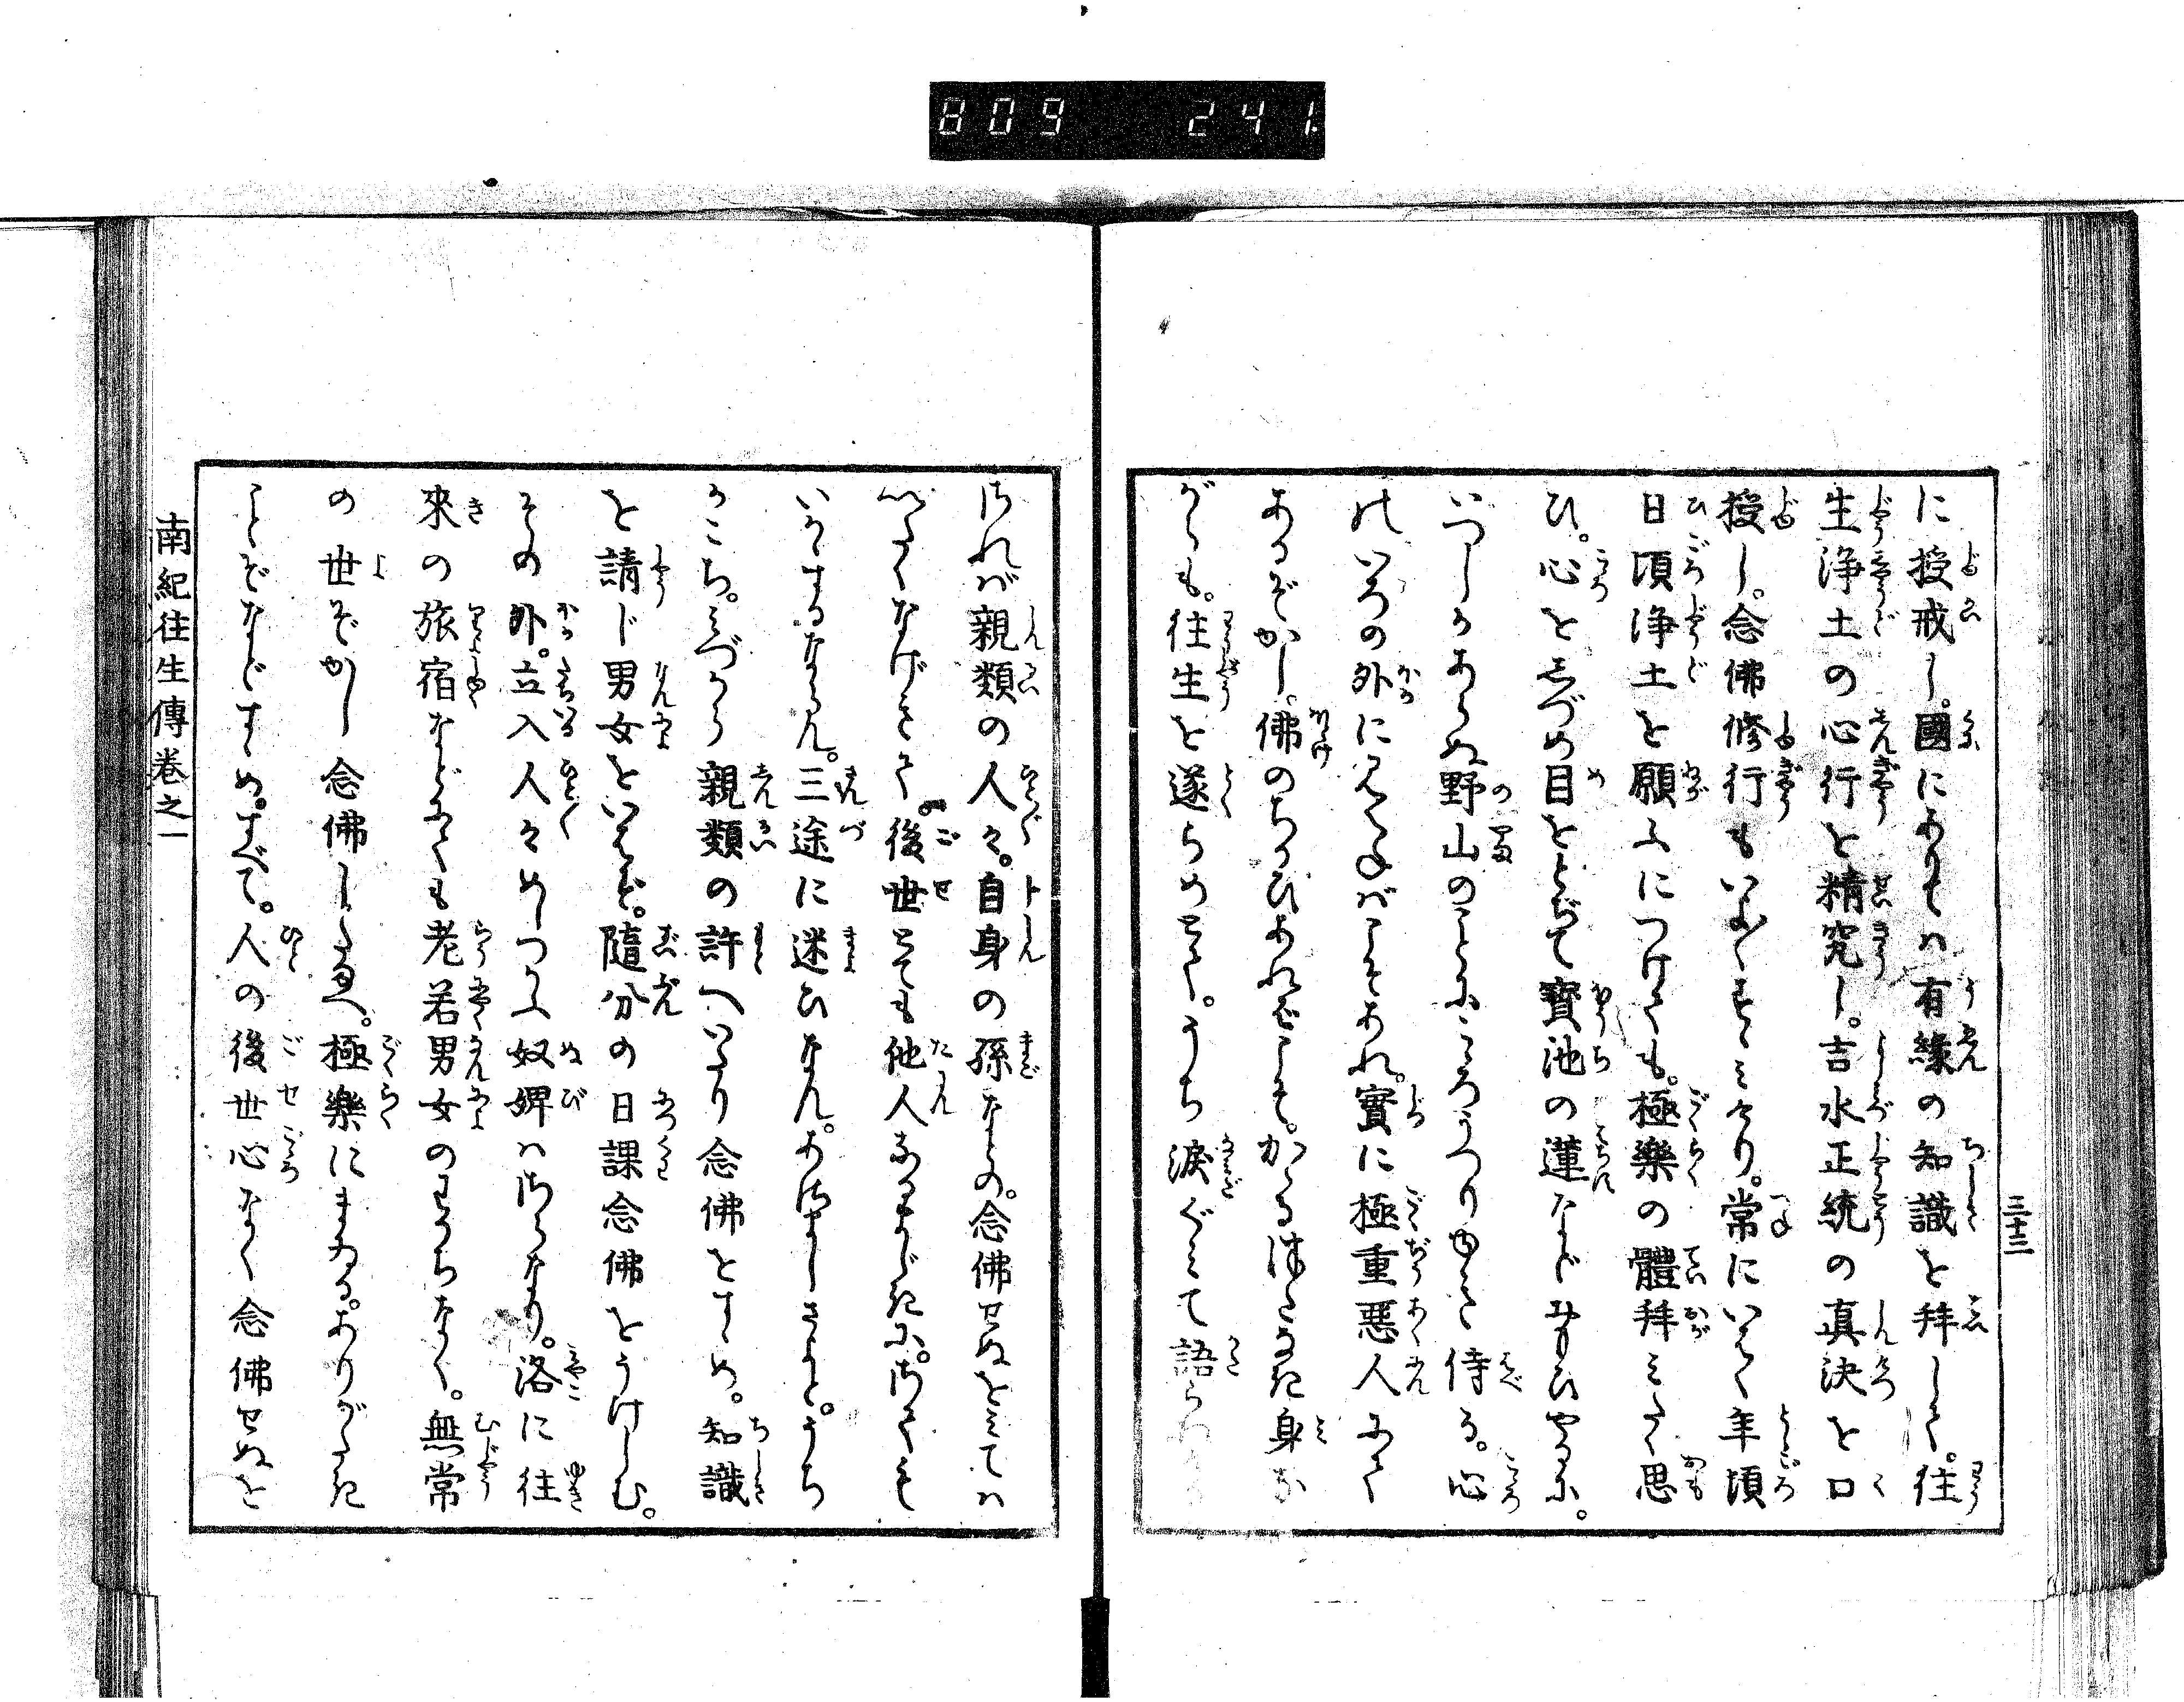 809 241.
三十三
に授戒し。國にありては有縁の知識を拜して。往
生浄土の心行を精究し。吉水正統の真決を口
授し。念佛修行もいよ〳〵すゝみけり。常にいはく年頃
日頃浄土を願ふにつけても。極樂の體拜みたく思
ひ。心をしづめ目をとぢて寳池の蓮などおもひやるに。
いつしかあらぬ野山のことにこゝろうつりゆきて侍る。心
のいろの外に見えねばこそあれ。實に極重悪人にて
あるぞかし。佛のちかひあればこそ。かゝるつたなき身な
がらも。往生を遂らめとて。うち涙ぐみて語ら
されば親類の人々。自身の孫などの。念佛せぬをみては
いたくなげきて。後世とても他人なるまじきに。さても
いかするならん。三途に迷ひなん。あさましきかと。うち
かこち。みづから親類の許へいたり念佛をすゝめ。知識
を請じ男女をいはず。隨分の日課念佛をうけしむ。
その外。立入人々めしつかふ奴婢はさらなり。洛に往
來の旅宿などにても老若男女のわかちなく。無常
の世ぞかし念佛したまへ。極樂にまゐる。ありがたき
ことぞなどすゝめ。すべて。人の後世心なく念佛せぬを
南紀往生傳卷之一